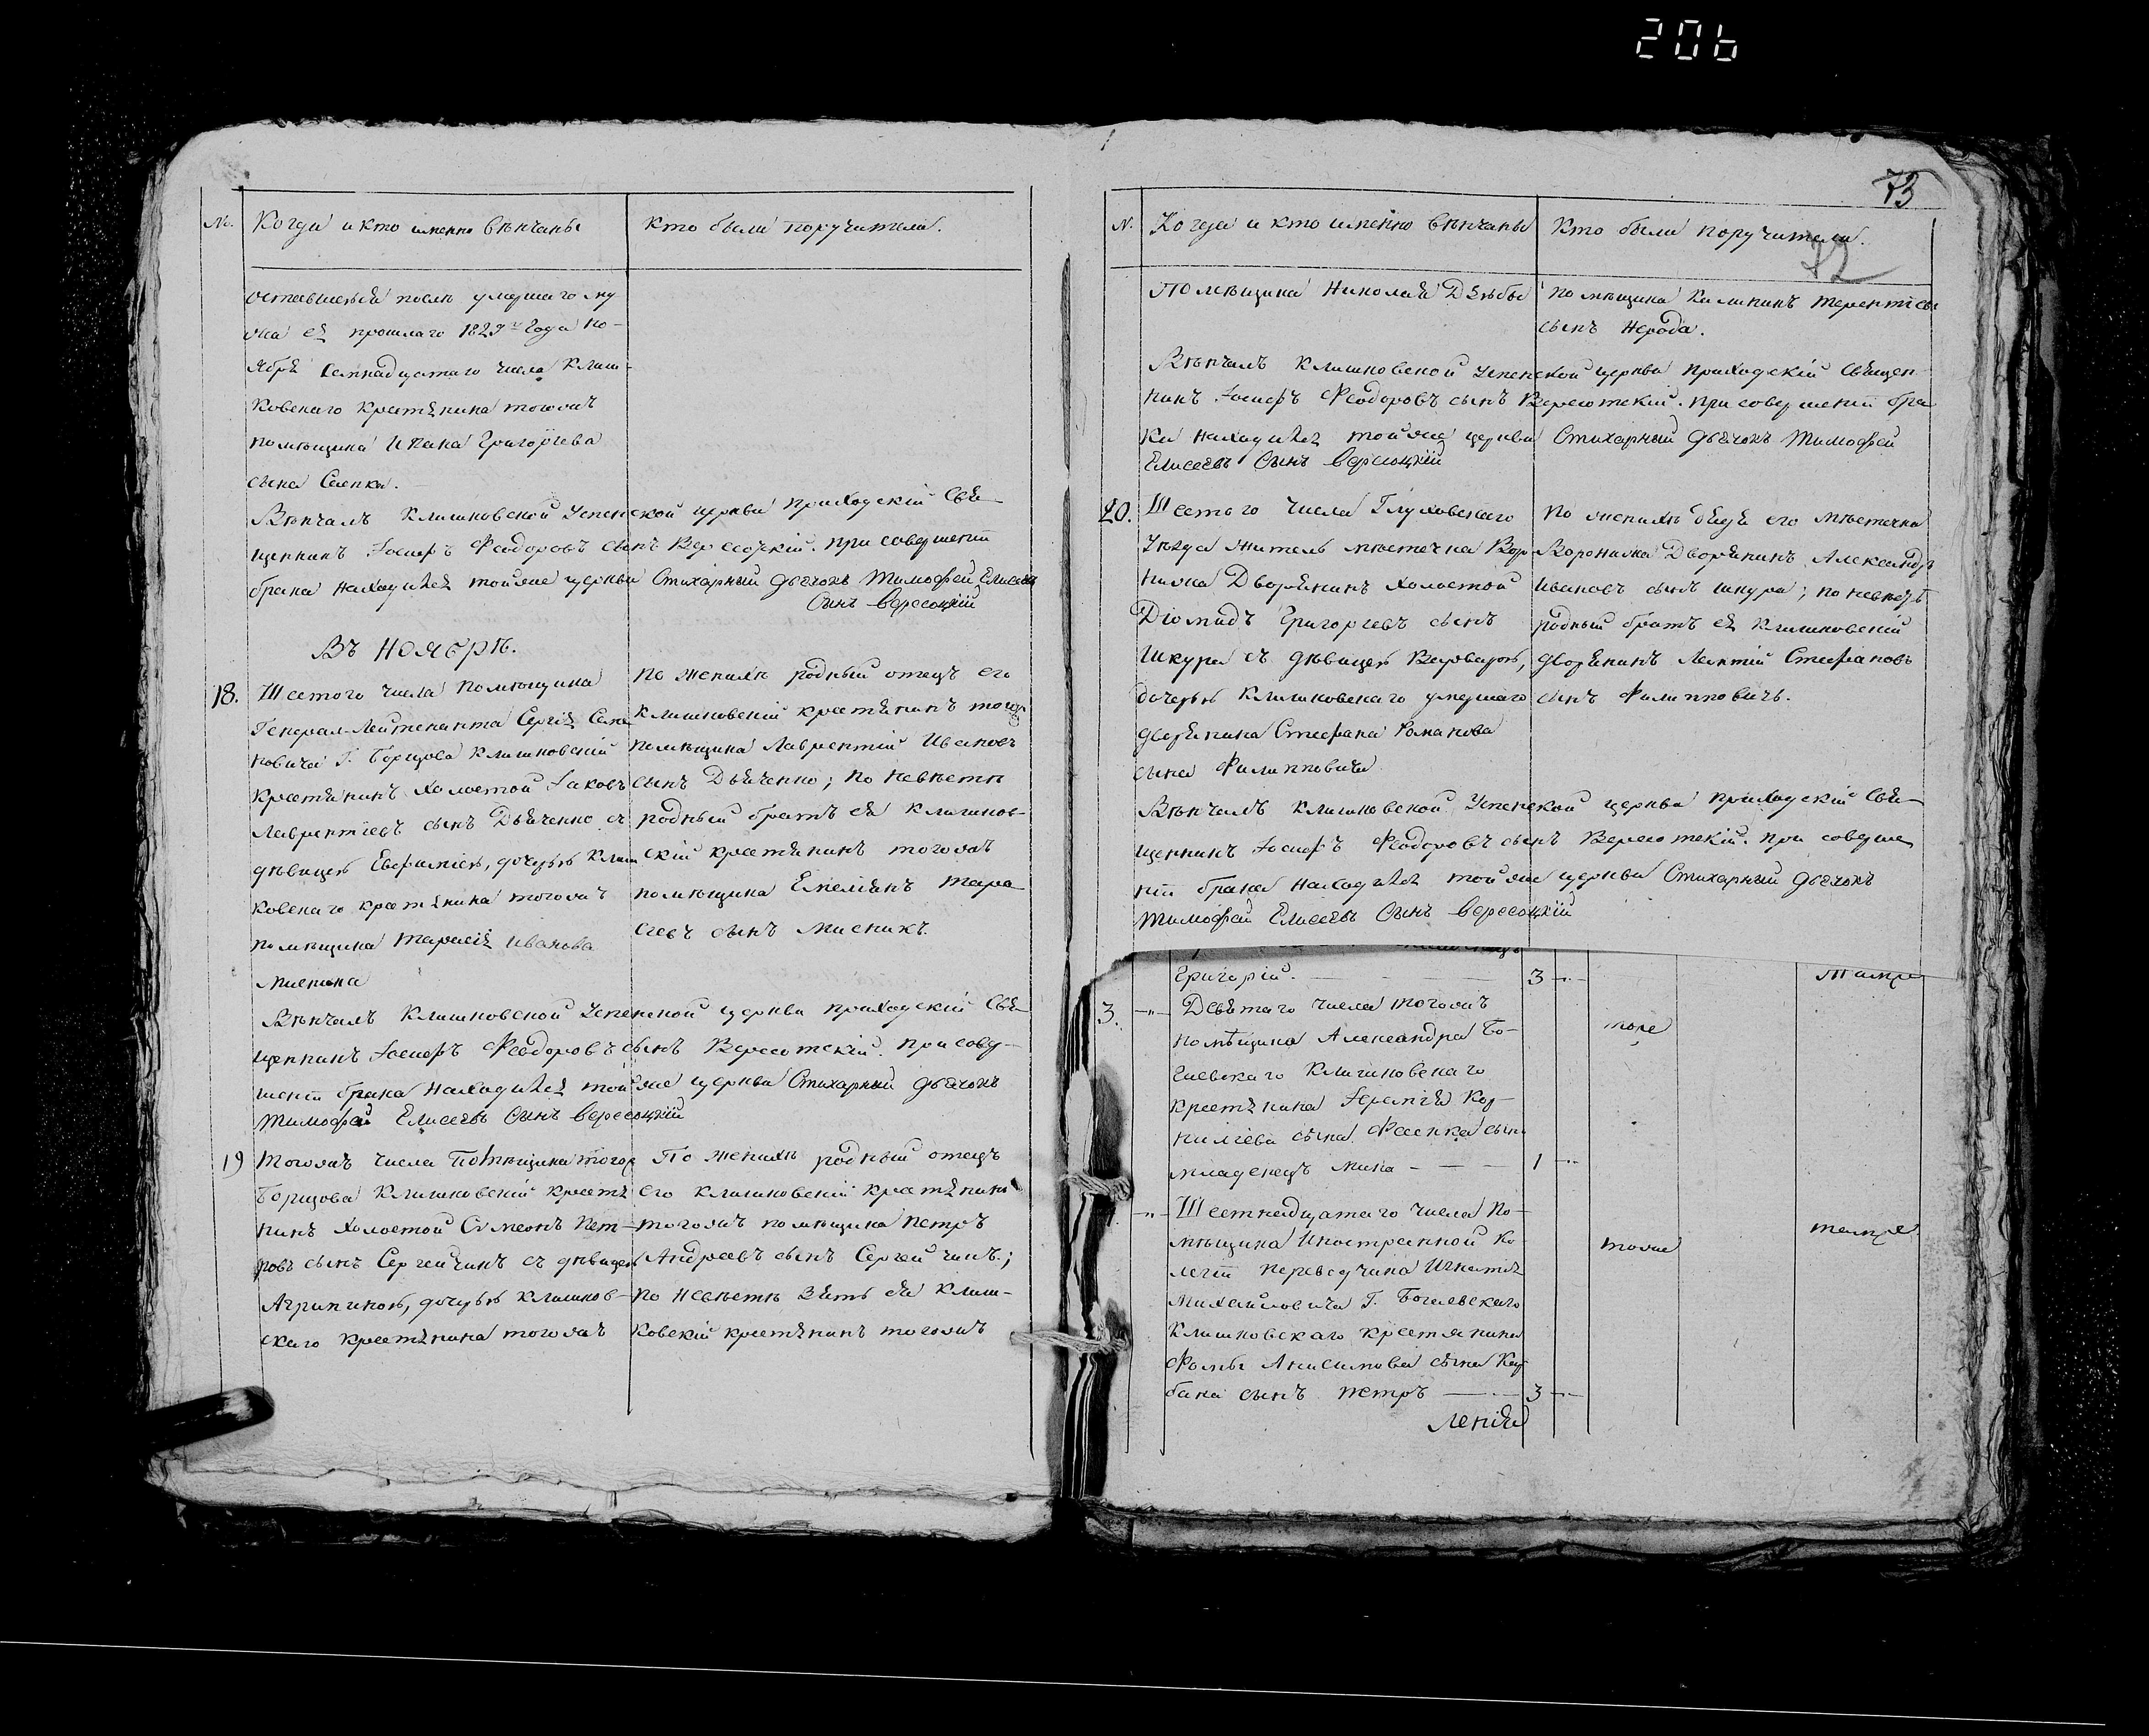 206
№.
Когда и кто именно вѣнчаны
Кто были поручители.
оставшеюся послѣ умершаго му-
жа ея прошлаго 1829го Года но-
ября семнадцатаго числа Клиш-
ковскаго крестянина тогожъ
помѣщика Ивана Григорїева
сына
Вѣнчалъ Клишковской Успенской церкви приходскїй Свя-
щенникъ Іосифъ Феодоровъ сынъ Вересоцкїй. при совершенїи
брака находился тойже церкви Стихарный дьячокъ Тимофей Елисеевъ
Сынъ Вересоцкїй
Въ Ноябрѣ.
18.
Шестого числа помѣщика
Генерал-Лейтенанта Сергѣя Семе
новича Г. Борщова Клишковскїй
крестянинъ холостой Іаковъ
Лаврентїевъ сынъ Дьяченко съ
дѣвицею Евфимїею, дочерью Клиш
ковскаго крестянина тогожъ
помѣщика Тарасїя Иванова
Мисника
По женихѣ родный отецъ его
Клишковскїй крестянинъ тогож
помѣщика Лаврентїй Ивановъ
сынъ Дьяченко; по невѣсте
родный братъ ея Клишков-
скїй крестянинъ тогожъ
помѣщика Емелїянъ Тара
сїевъ сынъ Мисникъ.
Вѣнчалъ Клишковской Успенской церкви приходскїй Свя-
щенникъ Іосифъ Феодоровъ сынъ Вересотскїй. при совер-
шенїи брака находился тойже церкви Стихарный дьячокъ
Тимофей Елисеевъ Сынъ Вересоцкїй
19
Тогожъ числа Помѣщика тогож
Борщова Клишковскїй крестя
нинъ холостой Симеонъ Пет-
ровъ сынъ Сергейчикъ съ дѣвицею
Агрипиною, дочерью Клишков-
скаго крестянина тогожъ
По женихѣ родный отецъ
его Клишковскїй крестянинъ
тогожъ помѣщика Петръ
Андреевъ сынъ Сергейчикъ.;
по невѣсте Зять ея Клиш-
ковскїй крестянинъ тогожъ
73
N.
Когда и кто именно вѣнчаны
Кто были поручители.
72
Помѣщика Николая
помѣщика Калиникъ Терентїевъ
сынъ Нерода.
Вѣнчалъ Клишковской Успенской церкви приходскїй Священ
никъ Іосифъ Феодоровъ сынъ Вересотскїй. при совершенїи бра
ка находился тойже церкви Стихарный дьячокъ Тимофей
Елисеевъ Сынъ Вересоцкїй
20.
Шестого числа Глуховскаго
Уѣзда житель мѣстечка Воро
нежа Дворянинъ холостой
Дїомидъ Григорїевъ сынъ
Шкура съ дѣвицею Варварою,
дочерью Клишковскаго умершаго
дворянина Стефана Романова
сына Филипповича
По женихѣ дядя его мѣстечка
Воронежа Дворянинъ Александръ
Ивановъ сынъ Шкура; по невѣстѣ
родный братъ ея Клишковскїй
дворянинъ Леонтїй Стефановъ
сынъ Филипповичъ.
Вѣнчалъ Клишковской Успенской церкви приходскїй Свя-
щенникъ Іосифъ Феодоровъ сынъ Вересотскїй. при соверше
нїи брака находился тойже церкви Стихарный дьячокъ
Тимофей Елисеевъ Сынъ Вересоцкїй
Григорїй. 3
3.
Девятаго числа тогожъ
помѣщика Александра Бо-
гаевскаго Клишковскаго
крестянина Кор-
нилїева сына сынъ
младенецъ Мина 1
тоже
Шестнадцатаго числа по-
мѣщика Иностранной Ко-
легїи переводчика Игнатїя
Михайловича Г. Богаевскаго
Клишковскаго крестянина
Фомы Анисимова сына Ка
бака сынъ Петръ 3
тоже
тамже
ленїя